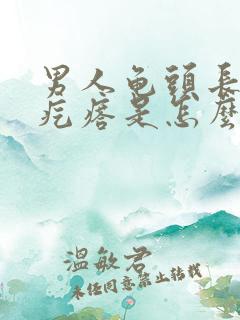 男人龜頭長
疙瘩是怎麼
溫敏君
未经同意禁止转载